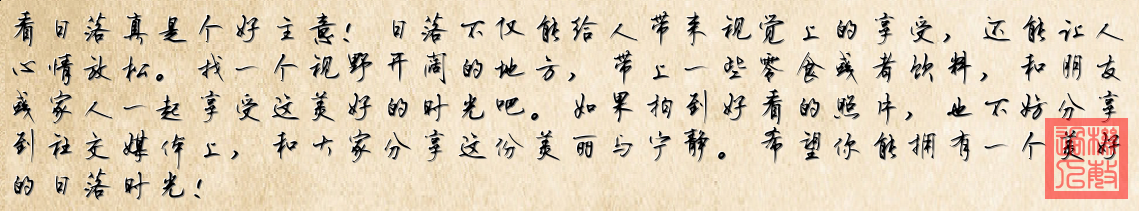 看日落真是个好主意！日落不仅能给人带来视觉上的享受，还能让人
心情放松。找一个视野开阔的地方，带上一些零食或者饮料，和朋友
或家人一起享受这美好的时光吧。如果拍到好看的照片，也不妨分享
到社交媒体上，和大家分享这份美丽与宁静。希望你能拥有一个美好
的日落时光！